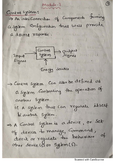 Module-1
Control System:-
An interconnection of Components forming
a System Configuration that will provide
a desired response
Input Control System Output
Energy source
Control System Can be defined as
a System Controlling the operation of
another System.
A System that Can regulate itself
& another System
A Control System is a device, or Set
of device to manage, Command,
direct or regulate the behaviour of
other device(s) or System(s).